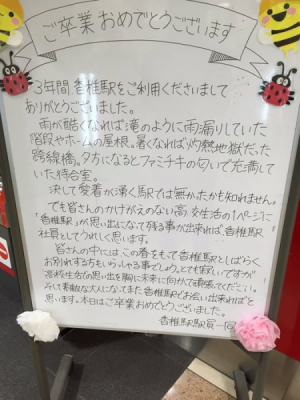 ご卒業おめでとうございます
3年間、香椎駅をご利用くださいまして
ありがとうございました。
雨が酷くなれば滝のように雨漏りしていた
階段やホームの屋根。暑くなれば灼熱地獄だった
跨線橋。夕方になるとファミチキの匂いで充満して
いた待合室。
決して愛着が湧く駅では無かったかも知れません。
でも皆さんのかけがえのない高校生活の1ページに
「香椎駅」が思い出になって残る事が出来れば、香椎駅
社員としてうれしく思います。
皆さんの中には、この春をもって香椎駅としばらく
お別れする方もいらっしゃる事でしょう。とても寂しいですが
高校生活の思い出を胸に未来に向かて頑張ってください。
そして素敵な大人になってまた香椎駅でお会い出来ればと
思います。本日はご卒業おめでとうございました。
香椎駅駅員一同